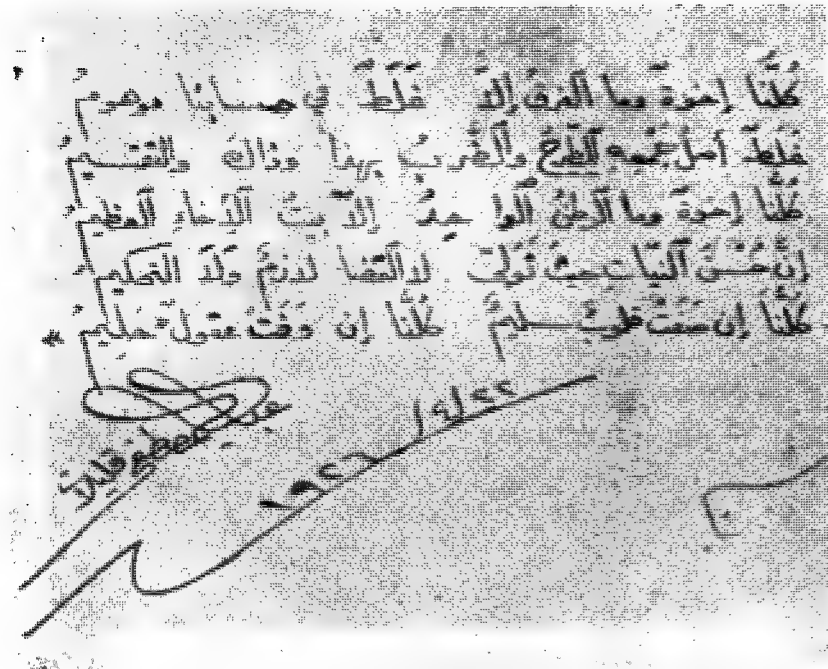 كُلُّنا إخوةٌ وما الفرقُ إلّا غَلَطٌ في حسابنا موهومُ
غلطٌ أصلُ جمعه الطرحُ والضربُ بهذا وذاك والتقسيمُ
كُلُّنا إخوةٌ وما الوطنُ الواحدُ إلّا بيتُ الإخاءِ
إنْ حَسُنَ النيّات حيثُ تولّت لا القضا لازمٌ ولا التحكيمُ
كُلُّنا إن صَفَتْ قلوبٌ سليمٌ كُلُّنا إن وَفَتْ عقولٌ حليمُ
١٩٢٦/٤/٢٢